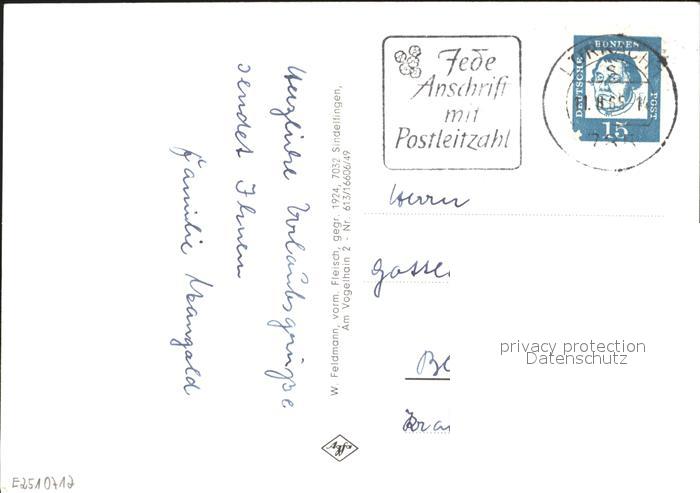 Jede
Anschrift
mit
Postleitzahl
DEUTSCHE BUNDESPOST
15
Herrn
Bl
Kra
privacy protection
Datenschutz
Herzliche Urlaubsgrüße
sendet Ihnen
Familie Mangold
W. Feldmann, vorm. Fleisch, gegr. 1924, 7032 Sindelfingen,
Am Vogelhain 2 - Nr. 613/16606/49
E2510712